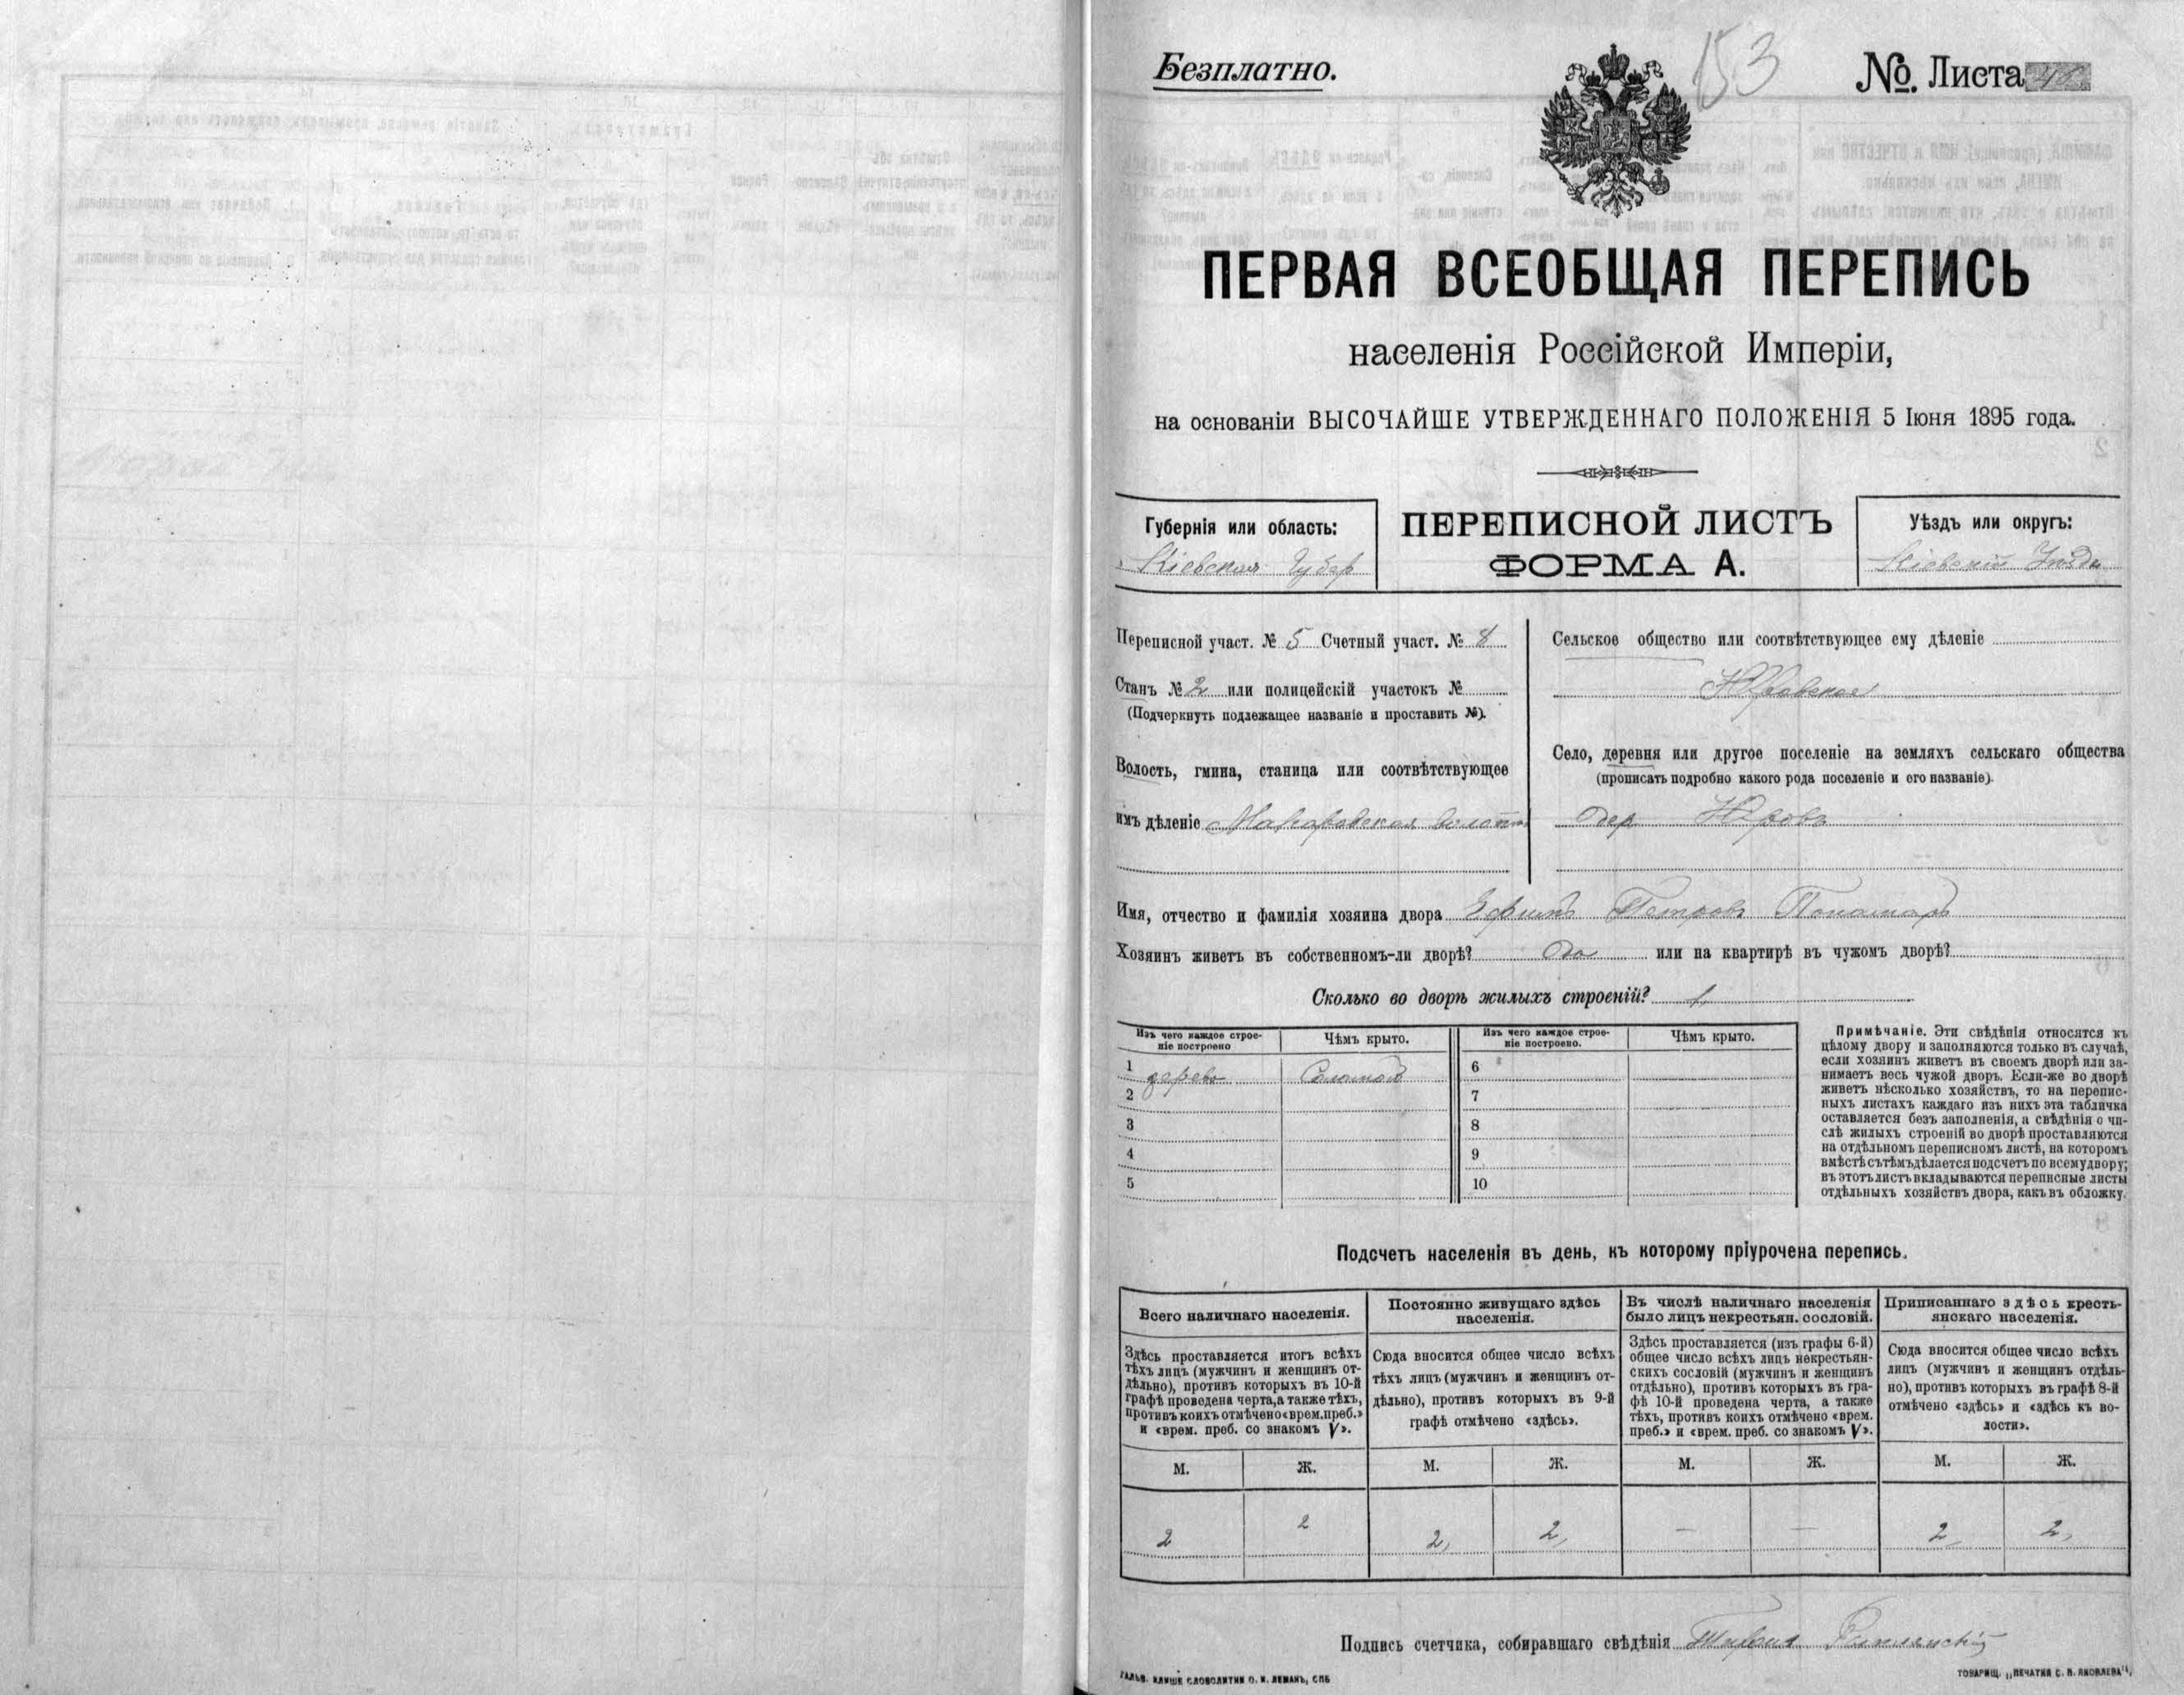 Безплатно.
153
№ Листа
ПЕРВАЯ ВСЕОБЩАЯ ПЕРЕПИСЬ
населенія Россійской Имперіи,
на основаніи ВЫСОЧАЙШЕ УТВЕРЖДЕННАГО ПОЛОЖЕНІЯ 5 Іюня 1895 года.
Губернія или область:
Кіевская Губер
ПЕРЕПИСНОЙ ЛИСТЪ
ФОРМА А.
Уѣздъ или округъ:
Кіевскій Уѣздъ
Переписной участ. № 5 Счетный участ. № 8
Станъ № 2 или полицейскій участокъ №
(Подчеркнуть подлежащее названіе и проставить №).
Волость, гмина, станица или соотвѣтствующее
имъ дѣленіе Макаровская волость
Сельское общество или соотвѣтствующее ему дѣленіе
Юровское
Село, деревня или другое поселеніе на земляхъ сельскаго общества
(прописать подробно какого рода поселеніе и его названіе).
дер Юровъ
Имя, отчество и фамилія хозяина двора Ефимъ Петровъ Понамарь
Хозяинъ живетъ въ собственномъ-ли дворѣ? да или на квартирѣ въ чужомъ дворѣ?
Сколько во дворѣ жилыхъ строеній? 1
Изъ чего каждое строе-
ніе построено
Чѣмъ крыто.
Изъ чего каждое строе-
ніе построено.
Чѣмъ крыто.
1 дерево Соломой 6
2 7
3 8
4 9
5 10
Примѣчаніе. Эти свѣдѣнія относятся къ
цѣлому двору и заполняются только въ случаѣ,
если хозяинъ живетъ въ своемъ дворѣ или за-
нимаетъ весь чужой дворъ. Если-же во дворѣ
живетъ нѣсколько хозяйствъ, то на перепис-
ныхъ листахъ каждаго изъ нихъ эта табличка
оставляется безъ заполненія, а свѣдѣнія о чи-
слѣ жилыхъ строеній во дворѣ проставляются
на отдѣльномъ переписномъ листѣ, на которомъ
вмѣстѣ съ тѣмъ дѣлается подсчетъ по всему двору;
въ этотъ листъ вкладываются переписные листы
отдѣльныхъ хозяйствъ двора, какъ въ обложку.
Подсчетъ населенія въ день, къ которому пріурочена перепись.
Всего наличнаго населенія.
Здѣсь проставляется итогъ всѣхъ
тѣхъ лицъ (мужчинъ и женщинъ от-
дѣльно), противъ которыхъ въ 10-й
графѣ проведена черта, а также тѣхъ,
противъ коихъ отмѣчено «врем. преб.»
и «врем. преб. со знакомъ V».
Постоянно живущаго здѣсь
населенія.
Сюда вносится общее число всѣхъ
тѣхъ лицъ (мужчинъ и женщинъ от-
дѣльно), противъ которыхъ въ 9-й
графѣ отмѣчено «здѣсь».
Въ числѣ наличнаго населенія
было лицъ некрестьян. сословій.
Здѣсь проставляется (изъ графы 6-й)
общее число всѣхъ лицъ некрестьян-
скихъ сословій (мужчинъ и женщинъ
отдѣльно), противъ которыхъ въ гра-
фѣ 10-й проведена черта, а также
тѣхъ, противъ коихъ отмѣчено «врем.
преб.» и «врем. преб. со знакомъ V».
Приписаннаго здѣсь кресть-
янскаго населенія.
Сюда вносится общее число всѣхъ
лицъ (мужчинъ и женщинъ отдѣль-
но), противъ которыхъ въ графѣ 8-й
отмѣчено «здѣсь» и «здѣсь къ во-
лости».
М. Ж. М. Ж. М. Ж. М. Ж.
2 2 2, 2, — — 2, 2,
Подпись счетчика, собиравшаго свѣдѣнія
ГАЛЬВ. КЛИШЕ СЛОВОЛИТНИ О. И. ЛЕМАНЪ, СПБ
ТОВАРИЩ. „ПЕЧАТНЯ С. П. ЯКОВЛЕВА",